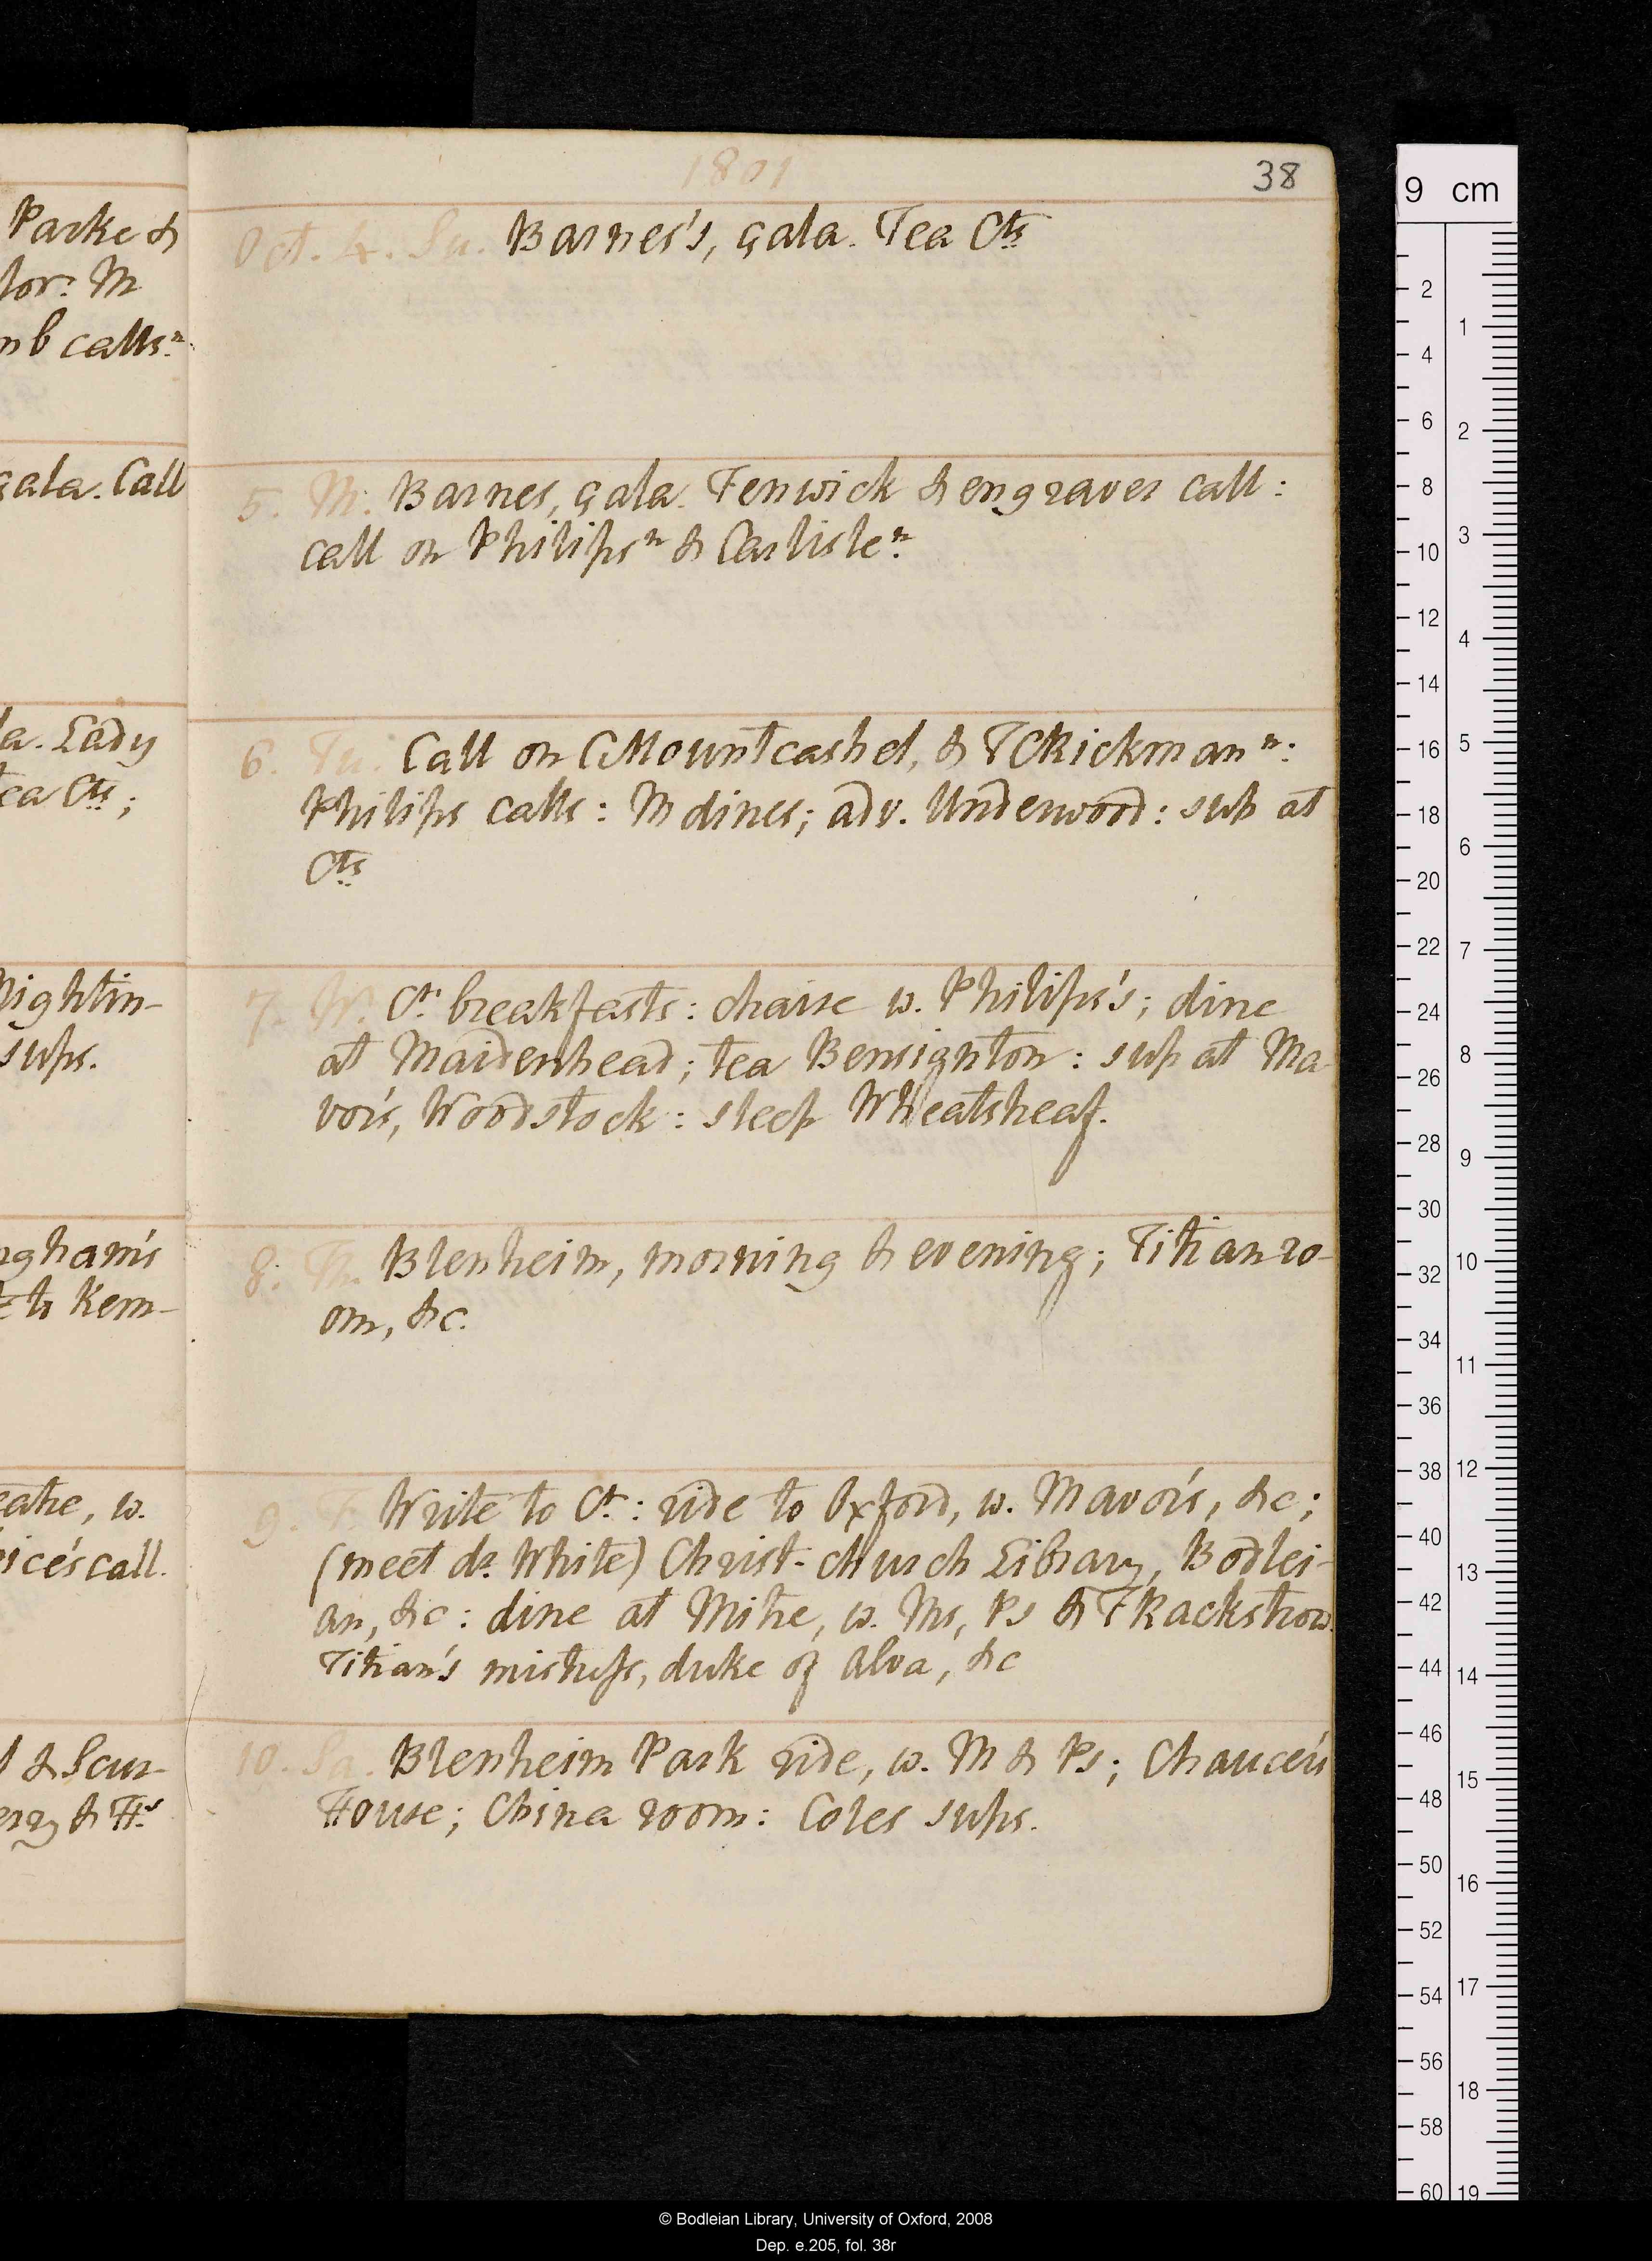 Parke &
lor: M
mb calls n
gala. Call
la. Lady
tea Cts;
Nightin-
sups.
ngham's
Kem-
eatre, w.
rice's call.
& Scur-
erry & Hs
1801
38
Oct. 4. Su. Barnes's, gala. Tea Cts
5. M. Barnes, gala. Fenwick & engraver call:
call on Philips n & Carlisle n
6. Tu. Call on CMountcashel, & TCRickman n:
Philips calls: M dines; adv. Underwood: sup at
Cts
7. W. Ct breakfasts: chaise w. Philips's; dine
at Maidenhead; tea Bensington: sup at Ma-
vor's, Woodstock: sleep Wheatsheaf.
8. Th. Blenheim, morning & evening; Titian ro-
om, &c.
9. F. Write to Ct: ride to Oxford, w. Mavor's, &c;
(meet dr White) Christ-church Library, Bodlei-
an, &c: dine at Mitre, w. Ms, Ps & F Rackstrow.
Titian's mistress, duke of Alva, &c
10. Sa. Blenheim Park ride, w. M & Ps; Chaucer's
House; China room: Coles sups.
9 cm
2 4 6 8 10 12 14 16 18 20 22 24 26 28 30 32 34 36 38 40 42 44 46 48 50 52 54 56 58 60
1 2 3 4 5 6 7 8 9 10 11 12 13 14 15 16 17 18 19
© Bodleian Library, University of Oxford, 2008
Dep. e.205, fol. 38r